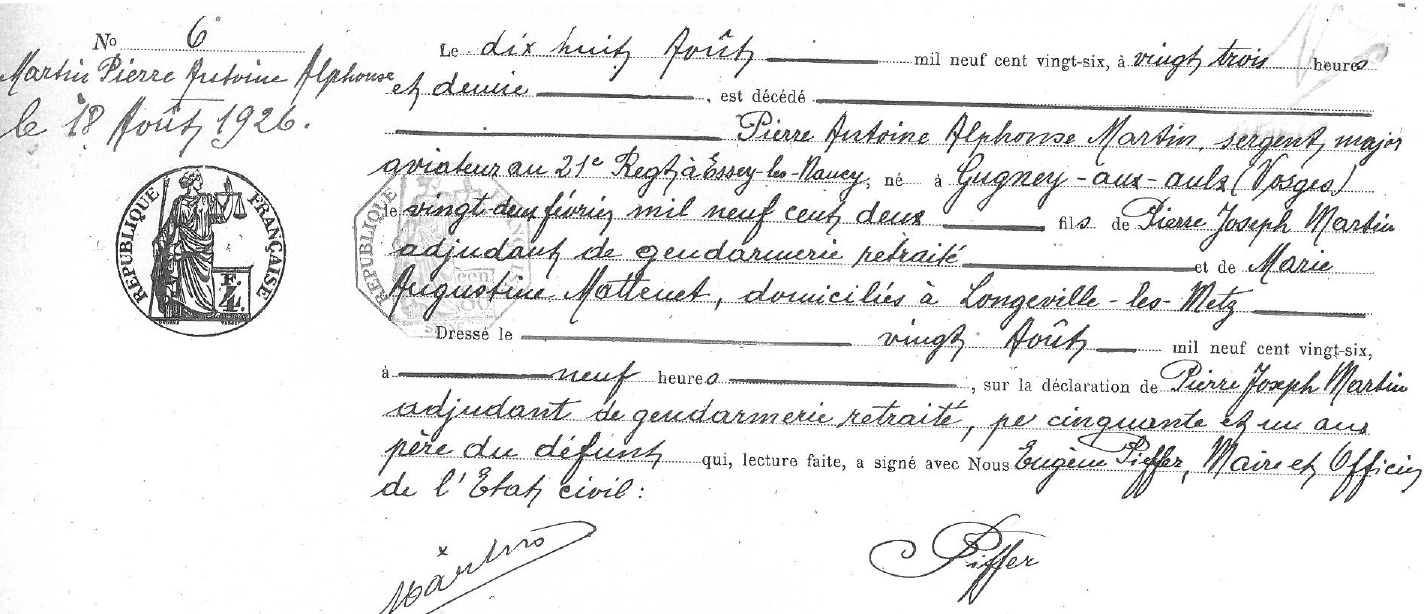 No 6
Martin Pierre Antoine Alphonse
le 18 Août 1926.
RÉPUBLIQUE FRANÇAISE
Le dix huit Août mil neuf cent vingt-six, à vingt trois heures
et demie, est décédé
Pierre Antoine Alphonse Martin, sergent major
aviateur au 21e Regt à Essey-les-Nancy, né à Gugney-aux-aulx (Vosges)
le vingt deux février mil neuf cent deux fils de Pierre Joseph Martin
adjudant de gendarmerie retraité et de Marie
Augustine Mattenet, domiciliés à Longeville-les-Metz
Dressé le vingt Août mil neuf cent vingt-six,
à neuf heures, sur la déclaration de Pierre Joseph Martin
adjudant de gendarmerie retraité, cinquante et un ans
père du défunt qui, lecture faite, a signé avec Nous Eugène Pieffer, Maire et Officier
de l'Etat civil:
Martin
Piffer